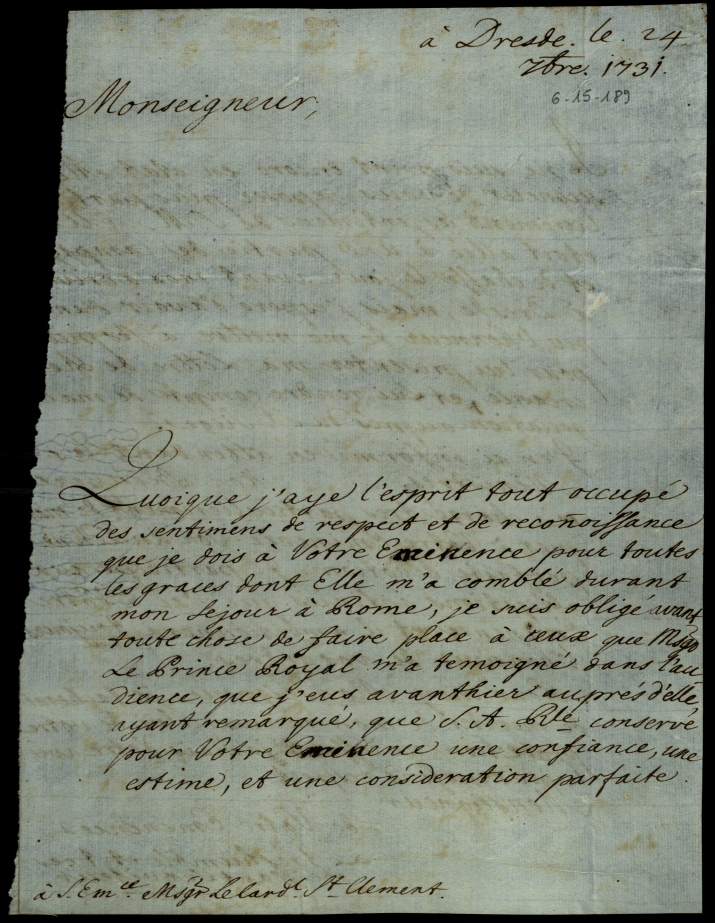 à Dresde. le. 24
7bre. 1731.
6-15-189
Monseigneur,
Quoique j'aye l'esprit tout occupé
des sentimens de respect et de reconoissance
que je dois à Votre Eminence pour toutes
les graces dont Elle m'a comblé durant
mon sejour à Rome, je suis obligé avant
toute chose de faire place à ceux que Msgr
Le Prince Royal m'a temoigné dans l'au-
dience, que j'eus avanthier auprés d'elle,
ayant remarqué, que S. A. Rle conserve
pour Votre Eminence une confiance, une
estime, et une consideration parfaite.
à S. Emce Msgr Le Cardl St Clement.